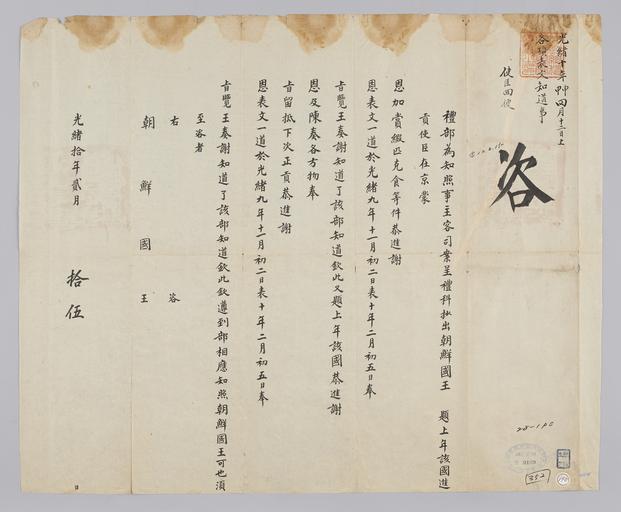 光緒十年甲申四月十三日上
各項表文知道事
使臣回便
咨
禮部為知照事主客司案呈禮科抄出朝鮮國王 題上年該國進
貢使臣在京蒙
恩加賞緞疋克食等件恭進謝
恩表文一道於光緒九年十一月初二日表十年二月初五日奉
旨覽王奏謝知道了該部知道欽此又題上年該國恭進謝
恩及陳奏各方物奉
旨留抵下次正貢恭進謝
恩表文一道於光緒九年十一月初二日表十年二月初五日奉
旨覽王奏謝知道了該部知道欽此欽遵到部相應知照朝鮮國王可也須
至咨者
右 咨
朝鮮國王
光緒拾年貳月 拾伍 日
352